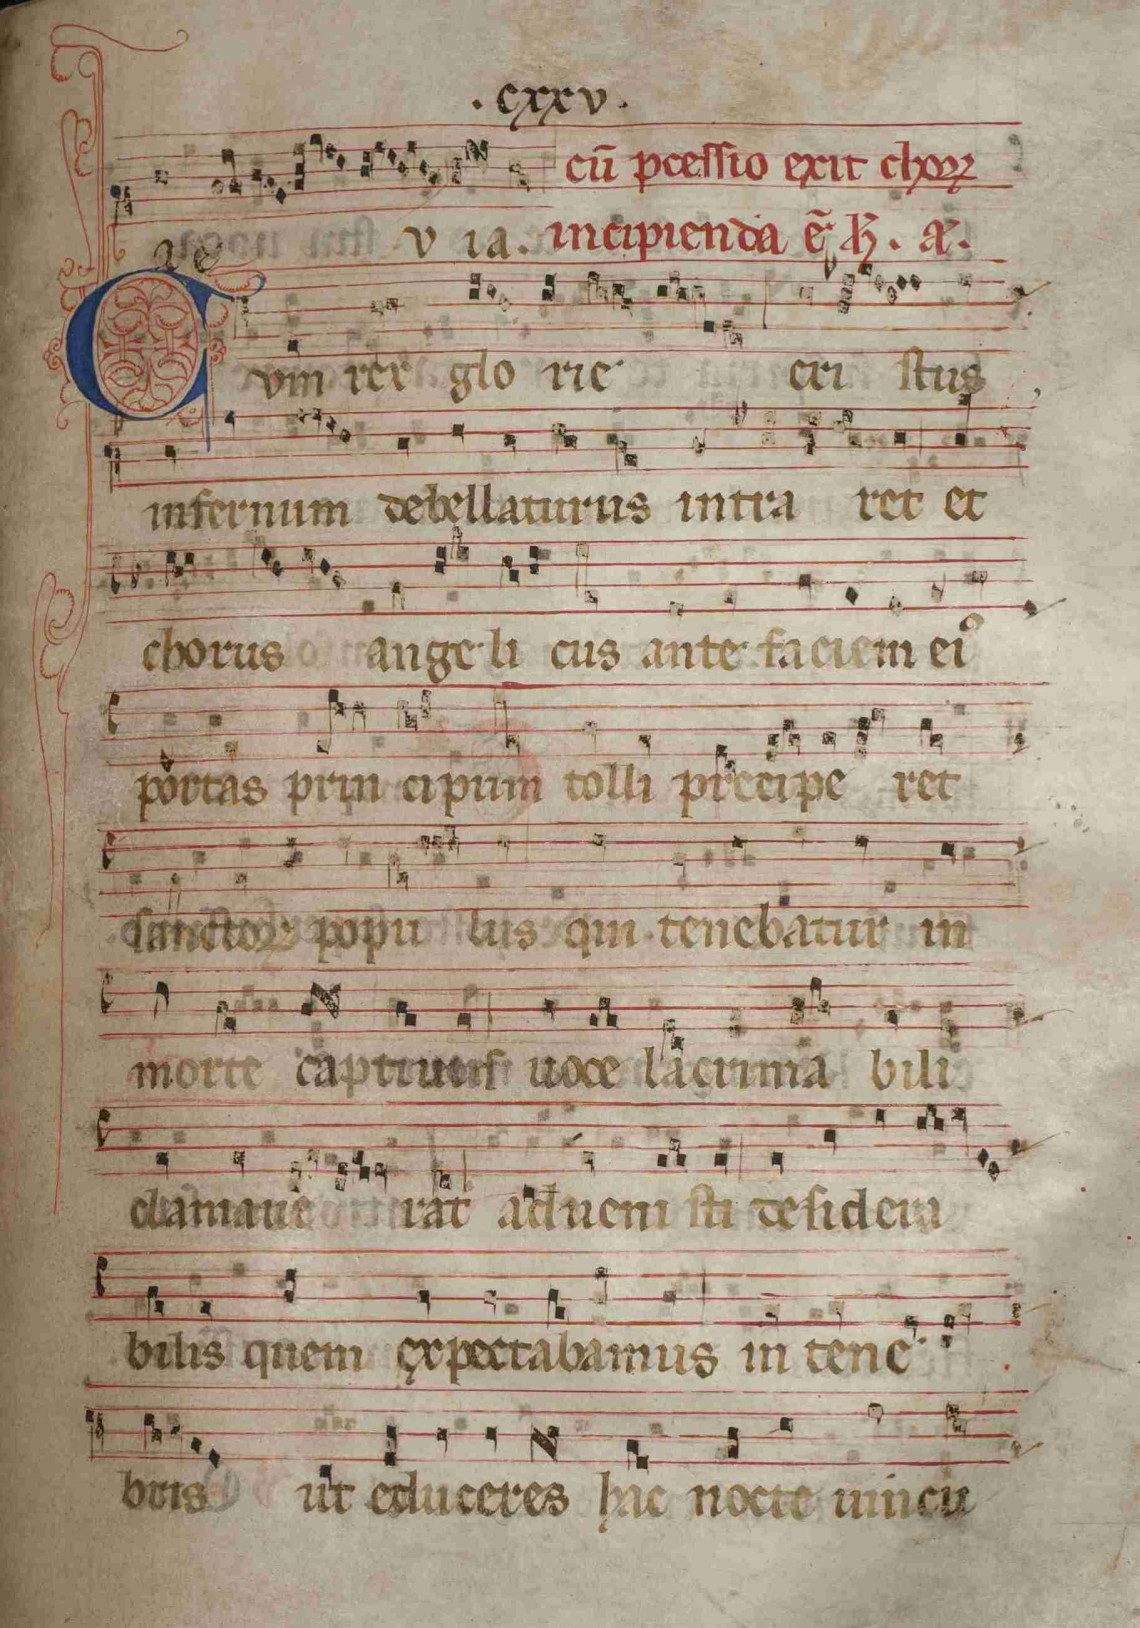 . cxxv .
cū pcessio exit choꝝ
ve v ia . incipienda ē
Cvm rex glo rie cri stus
infernum debellaturus intra ret et
chorus ange li cus ante faciem eiꝰ
portas prin cipum tolli precipe ret
sanctoꝝ popu lus qui tenebatur in
morte captiuus uoce lacrima bili
clamaue rat adueni sti desidera
bilis quem expectabamus in tene
bris ut educeres hac nocte uincu